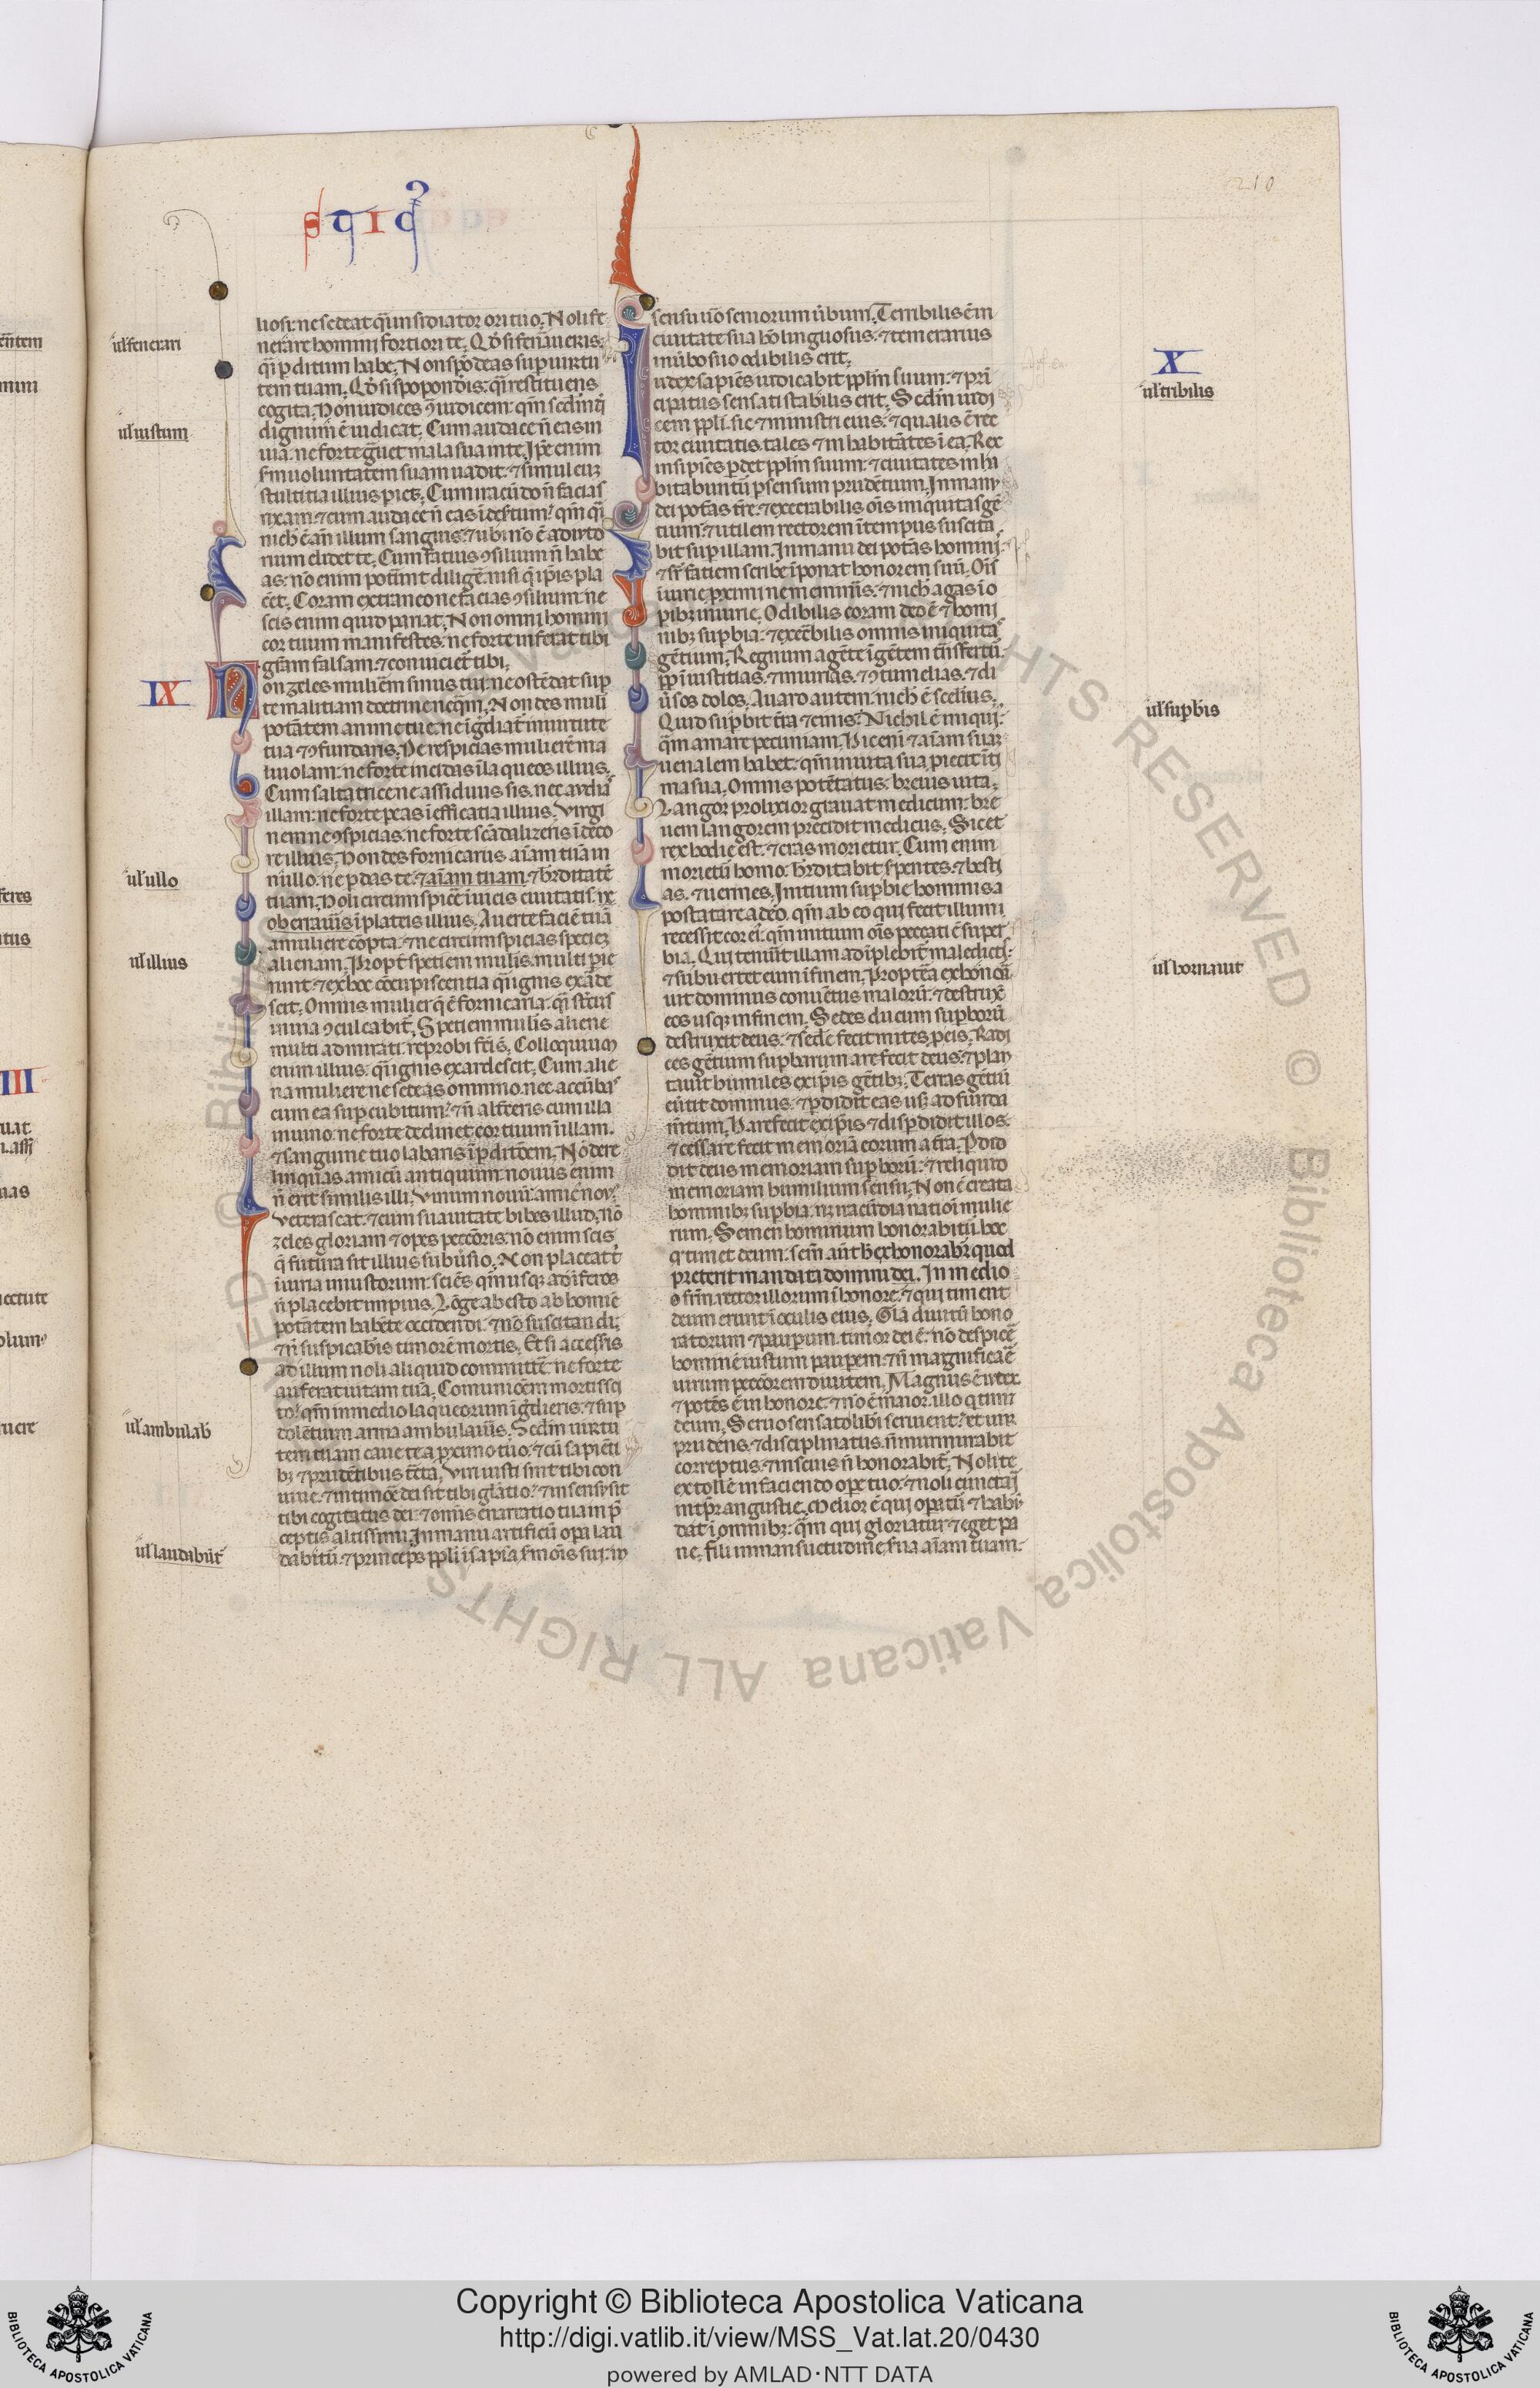 210
liosi: ne sedeat q̄i insidiator ori tuo. Noli fe
nerare homini fortiori te. Qd̓ si feñaueris:
q̄i p̱ditum habe. Non spōdeas sup̱ uirtu
tem tuam. Qd̓ si spopond̓is: q̄i restituens
cogita. Non iudices ꝯ iudicem: qm̄ scd̓m q̓
dignum ē iudicat. Cum audace n̄ eas in
uia: ne forte
uoluntatem suam uadit: ⁊ simul cuȝ
stultitia illius
Cum iracūdo n̄ facias
rixam ⁊ cum audace n̄ eas
nich̓ ē añ illum sanguis: ⁊ ubi nō ē adiuto
rium elidet te. Cum fatuis ꝯsilium n̄ habe
as: nō enim pot̓unt dilig̓e nisi q̓ ip̄is pla
cēt. Coram extraneo ne facias ꝯsilium: ne
scis enim quid pariat. Non omni homini
cor tuum manifestes: ne forte inferat tibi
gr̄am falsam: ⁊ conuiciet̓ tibi.
IX
Non zeles mulierē sinus tui: ne ostēdat sup̱
te malitiam doctrine neq̄m. Non des muli
potātem anime tue: ne ig̓diat̓ in uirtute
tua ⁊ ꝯfundaris. Ne respicias mulierē ma
liuolam: ne forte incidas ī laqueos illius.
Cum saltatrice ne assiduus sis: nec audia
illam: ne forte peas ī efficatia illius. Virgi
nem ne ꝯspicias: ne forte scādalizeris ī deco
re illius. Non des fornicariis aīam tuā in
nullo: ne p̱das te: ⁊ aīam tuam ⁊ hr̄ditatē
tuam. Noli circumspicē ī uicis ciuitatis:
oberraūis ī plateis illius. Auerte faciē tuā
a muliere cōpta: ⁊ ne circumspicias speciēȝ
alienam. Propt̓ spetiem mulis multi p̱ie
runt: ⁊ ex hoc cōcupiscentia q̄i ignis exarde
scit. Omnis mulier q̓ ē fornicaria: q̄i st̓cus
in uia ꝯculcabit̓. Spetiem mulis aliene
multi admirati reprobi fc̄i sc̄. Colloquium
enim illius: q̄i ignis exardescit. Cum alie
na muliere ne sedeas omnino: nec accūbas
cum ea sup̱ cubitum: ⁊ n̄ alt̓ceris cum illa
in uino: ne forte declinet cor tuum ī illam:
⁊ sanguine tuo labaris ī p̱ditōem. Nō dere
linquas amicū antiquum: nouus enim
n̄ erit similis illi. Vinum nouū amic̄ nou
veterascat: ⁊ cum suauitate bibes illud. Nō
zeles gloriam ⁊ opes peccōris: nō enim scis
q̓ futura sit illius subūsio. Non placeat t̓
iniuria iniustorum: sciēs qm̄ usqȝ ad īferos
n̄ placebit impius. Lōge abesto ab homīe
potātem habēte occidendi: ⁊ nō suscitandi:
⁊ n̄ suspicab̓is timorē mortis. Et si accessis
ad illum noli aliquid committē: ne forte
auferat uitam tuā. Comunicōem mortis
to: qm̄ in medio laqueorum ig̓dieris: ⁊ sup̱
dolētium arma ambulaūis. Scd̓m uirtu
tem tuam caue te a p̱ximo tuo: ⁊ cū sapiēti
bȝ ⁊ prudētibus tc̄ta. Viri iusti sint tibi con
uiue: ⁊ in timōe dei sit tibi gl̓atio: ⁊ in sensu sit
tibi cogitatus dei: ⁊ om̄is enarratio tua in p̄
ceptis altissimi. In manu artificū opa lau
dabūtū: ⁊ princeps ppl̓i ī sapīa s̓monis sui: in
sensu uō seniorum ūbum. Terribilis ē in
ciuitate sua hō linguosus: ⁊ temerarius
in ūbo suo odibilis erit.
X
Iudex sapiēs iudicabit ppl̓m suum: ⁊ pri
cipatus sensati stabilis erit. Scd̓m iudi
cem ppl̓i: sic ⁊ ministri eius: ⁊ qualis ē rec
tor ciuitatis: tales ⁊ inhabitātes ī ea. Rex
insipiēs p̱det ppl̓m suum: ⁊ ciuitates inha
bitabuntū p̱ sensum prudētium. In manu
dei potās tr̄e: ⁊ execrabilis om̄is iniquitas gē
tium: ⁊ utilem rectorem ī tempus suscita
bit sup̱ illam. In manu dei potās hominis:
⁊ sr̄ fatiem scribe īponat honorem suū. Ois
iniurie p̱ximi ne memineris: ⁊ nich̓ agas ī o
p̱ibȝ iniurie. Odibilis coram deo ē ⁊ homi
nibȝ sup̱bia: ⁊ execrabilis omnis iniquita
gētium. Regnum a gēte ī gētem tn̄sfert̄ū:
pp̱ iniustitias: ⁊ iniurias: ⁊ ꝯtumelias: ⁊ di
ūsos dolos. Auaro autem: nich̓ ē scelius.
Quid sup̱bit tr̄a ⁊ cinis. Nichil ē iniqui:
q̄m amare pecuniam. Hic eni ⁊ aīam suaȝ
uenalem habet: qm̄ in uita sua p̱iecit īti
ma sua. Omnis potētatus: breuis uita.
Langor prolixior grauat medicum: bre
uem langorem precidit medicus. Sic et
rex hodie est: ⁊ cras morietur. Cum enim
morietū homo: hr̄ditabit s̓pentes: ⁊ besti
as: ⁊ uermes. Initium sup̱bie hominis a
postatare a deo: qm̄ ab eo qui fecit illum
recessit cor ei: qm̄ initium ois peccati ē super
bia. Qui tenūit illam adīplebit̓ maledictis:
⁊ subuertet eum ī finem. Propterea exhonora
uit dominus conuētus malorū: ⁊ destruxit
eos usqȝ in finem. Sedes ducum sup̱borū
destruxit deus: ⁊ sedē fecit mites p̱ eis. Radi
ces gētium sup̱barum arefecit deus: ⁊ plan
tauit humiles ex ip̄is gētibȝ. Terras gētiū
eūtit dominus: ⁊ p̱didit eas usqȝ ad funda
m̄tum. Harefecit ex ip̄is ⁊ disp̱didit illos:
⁊ cessare fecit memoriā eorum a tr̄a. P̱did
dit deus memoriam sup̱borū: ⁊ reliquid
memoriam humilium sensu. Non ē creata
hominibȝ sup̱bia: nȝ iracūdia nationi mulie
rum. Semen hominum honorabitū hoc
q̓ timet deum: sem̄ aūt h̓ exhonorabit̓ quod
preterit mandata domini dei. In medio
frm̄ rector illorum ī honore: ⁊ qui timent
deum erunt ī oculis eius. Gl̓a diuitū hono
ratorum ⁊ paup̱um: timor dei ē: nō despicē
hominē iustum paup̱em: ⁊ n̄ magnificaē
uirum peccōrem diuitem. Magnus ē iudex
⁊ potēs ē in honore: ⁊ nō ē maior illo q̓ timet
deum. Seruo sensato lib̓i seruient: et uir
prudens: ⁊ disciplinatus n̄ murmurabit
correptus: ⁊ inscius n̄ honorabit̓. Nolite
extollē in faciendo op̱e tuo: ⁊ noli cunctari
in tp̄r angustie. Melior ē qui op̱atū ⁊ habū
dat ī omnibȝ: q̄m qui gloriatur ⁊ eget pa
ne. Fili in mansuetudine s̓ua aīam tuam:
ul̓ fenerari
ul̓ iustum
ul̓ ullo
ul̓ illius
ul̓ ambulab̓
ul̓ laudabūt̓
ul̓ tribilis
ul̓ sup̱bis
ul̓ hornauit
Copyright © Biblioteca Apostolica Vaticana
http://digi.vatlib.it/view/MSS_Vat.lat.20/0430
powered by AMLAD·NTT DATA
BIBLIOTECA APOSTOLICA VATICANA
BIBLIOTECA APOSTOLICA VATICANA